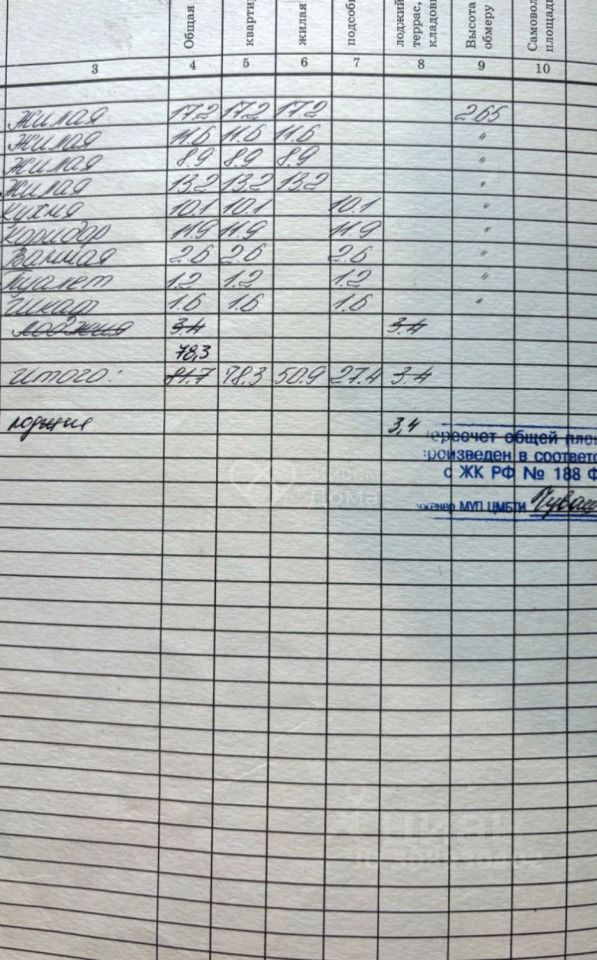 Общая
кварти
жилая
подсоб
лоджий
террас,
кладовь
Высота
обмеру
Самовол
площадь
3 4 5 6 7 8 9 10
Жилая 17.2 17.2 17.2 265
Жилая 11.6 11.6 11.6 "
Жилая 8.9 8.9 8.9 "
Жилая 13.2 13.2 13.2 "
Кухня 10.1 10.1 10.1 "
Коридор 11.9 11.9 11.9 "
Ванная 2.6 2.6 2.6 "
Туалет 1.2 1.2 1.2 "
Шкаф 1.6 1.6 1.6 "
лоджия 3.4 3.4
78,3
итого: 81.7 78.3 50.9 27.4 3.4
лоджия 3,4
ересчет общей пло
роизведен в соответс
с ЖК РФ № 188 Ф
женер МУП ЦМБТИ
Дома
циан